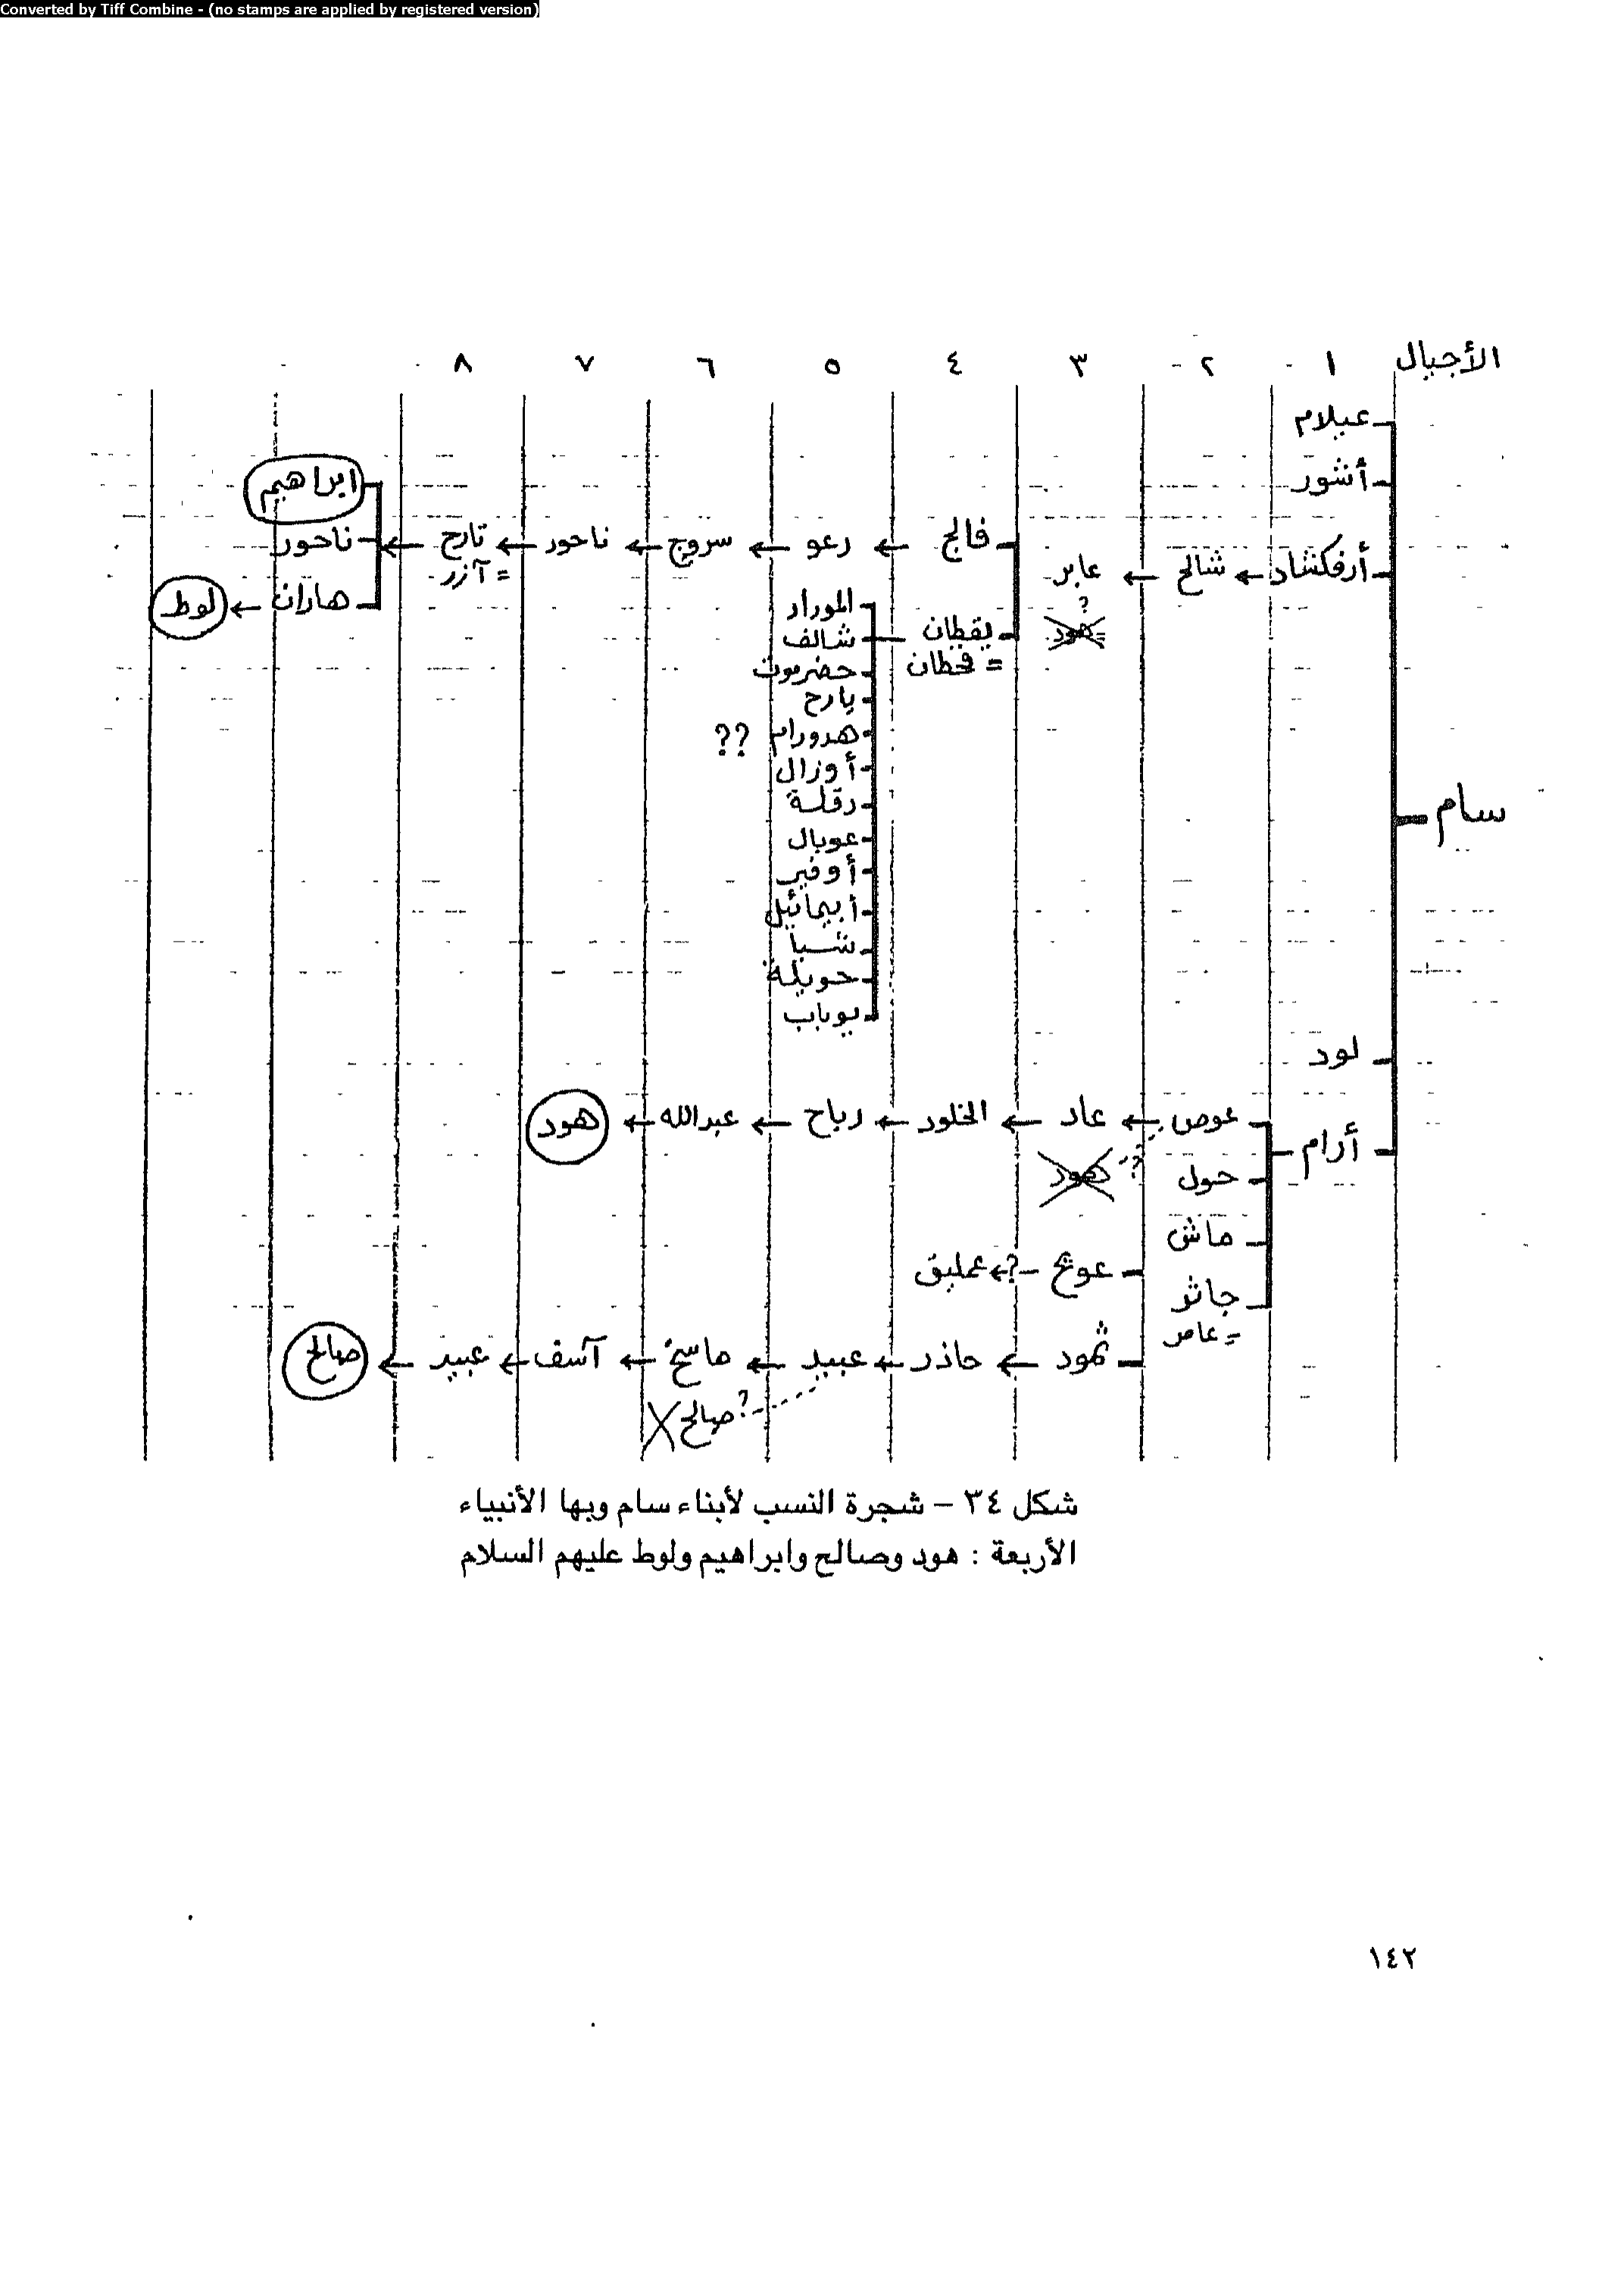 Converted by Tiff Combine - (no stamps are applied by registered version)
الأجيال ١ ٢ ٣ ٤ ٥ ٦ ٧ ٨
عيلام
أشور
ابراهيم
فالج ← رعو ← سروج ← ناحور ← تارح ← ناحور
أرفكشاد ← شالح ← عابر
= آزر
هاران ← لوط
? = هود
يقطان
= قحطان
الموراد
شالف
حضرموت
يارح
هدورام ??
أوزال
دقلة
عوبال
أوفير
أبيمائيل
شبا
حويلة
يوباب
سام
لود
أرام
عوص ← عاد ← الخلود ← رباح ← عبدالله ← هود
? هود
حول
ماش
عوج ?← عمليق
جاثر
= عامر
ثمود ← حاذر ← عبيد ← ماسخ ← آسف ← عبيد ← صالح
? صالح X
شكل ٣٤ – شجرة النسب لأبناء سام وبها الأنبياء
الأربعة : هود وصالح وابراهيم ولوط عليهم السلام
١٤٢